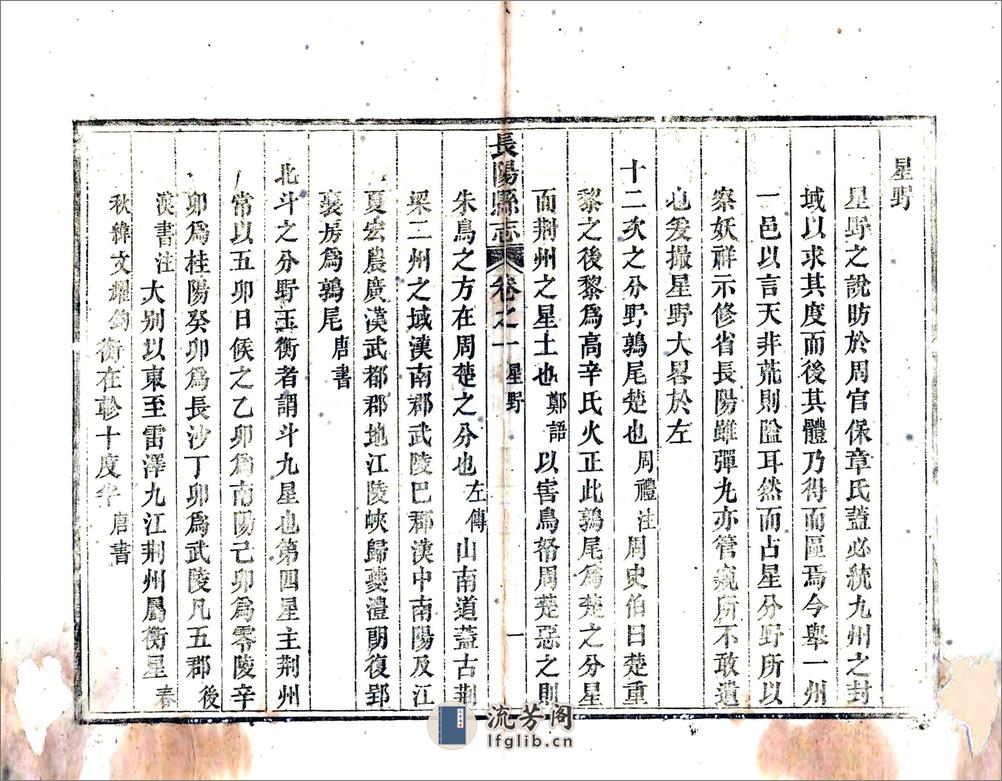 星野
星野之說昉於周官保章氏蓋必統九州之封
域以求其度而後其體乃得而區焉今舉一州
一邑以言天非荒則隘耳然而占星分野所以
察妖祥示修省長陽雖彈丸亦管窺所不敢遺
也爰撮星野大畧於左
十二次之分野鶉尾楚也周禮注周史伯曰楚重
黎之後黎爲高辛氏火正此鶉尾爲楚之分星
而荆州之星土也鄭語以害鳥帑周楚惡之則
長陽縣志 卷之一 星野 一
朱鳥之方在周楚之分也左傳山南道蓋古荆
梁二州之域漢南郡武陵巴郡漢中南陽及江
夏宏農廣漢武都郡地江陵峽歸夔澧朗復郢
襄房爲鶉尾唐書
北斗之分野玉衡者謂斗九星也第四星主荆州
常以五卯日候之乙卯爲南陽己卯爲零陵辛
卯爲桂陽癸卯爲長沙丁卯爲武陵凡五郡後
漢書注大别以東至雷澤九江荆州屬衡星春
秋緯文耀鈎衡在軫十度半唐書
流芳阁
lfglib.cn